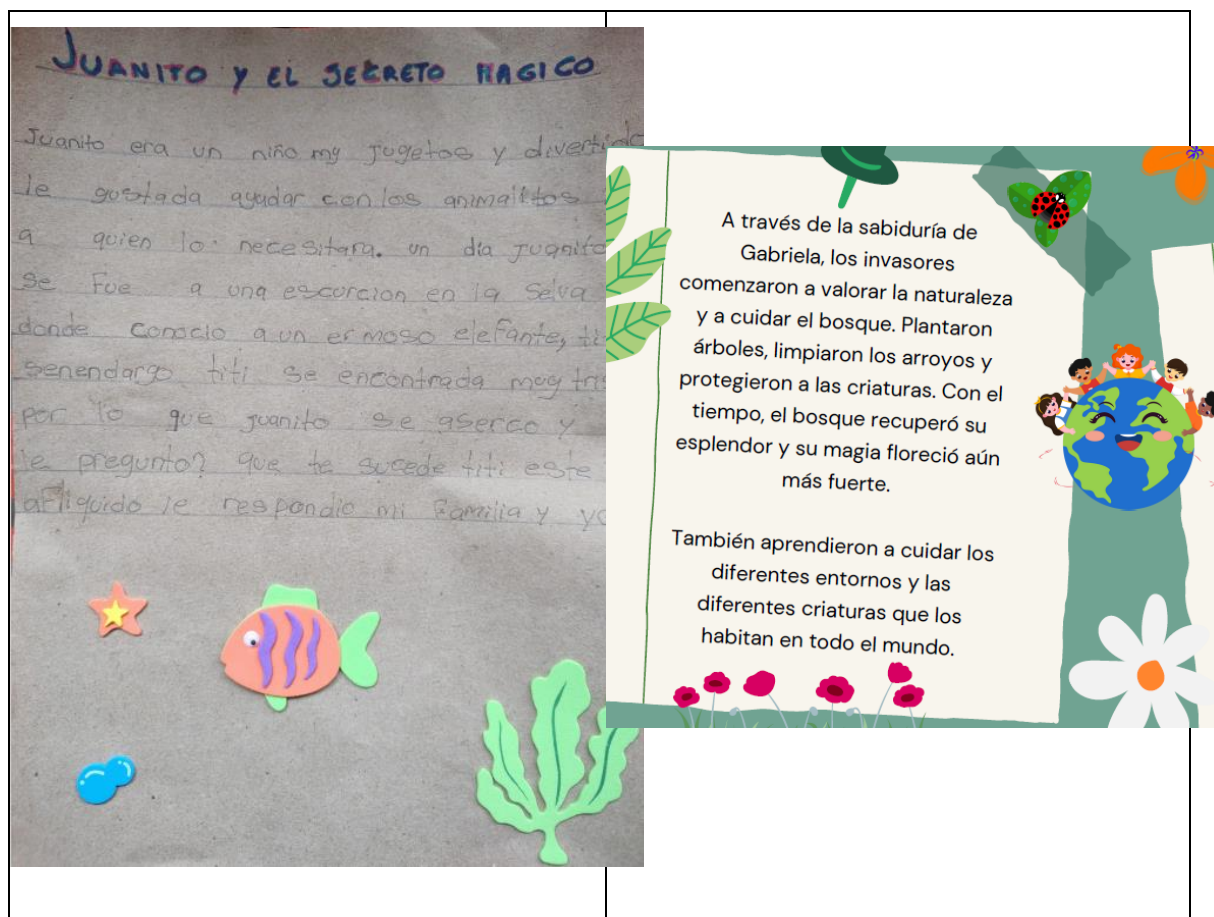 JUANITO Y EL SECRETO MAGICO
Juanito era un niño my jugetos y
le gustada ayudar con los animalitos
a quien lo necesitara. un día juanito
se fue a una escurcion en la selva
donde conocio a un ermoso elefante,
titi se encontrada muy
por lo que juanito se aserco y
le pregunto? que te sucede titi este
afliguido le respondio mi familia y yo
A través de la sabiduría de
Gabriela, los invasores
comenzaron a valorar la naturaleza
y a cuidar el bosque. Plantaron
árboles, limpiaron los arroyos y
protegieron a las criaturas. Con el
tiempo, el bosque recuperó su
esplendor y su magia floreció aún
más fuerte.
También aprendieron a cuidar los
diferentes entornos y las
diferentes criaturas que los
habitan en todo el mundo.